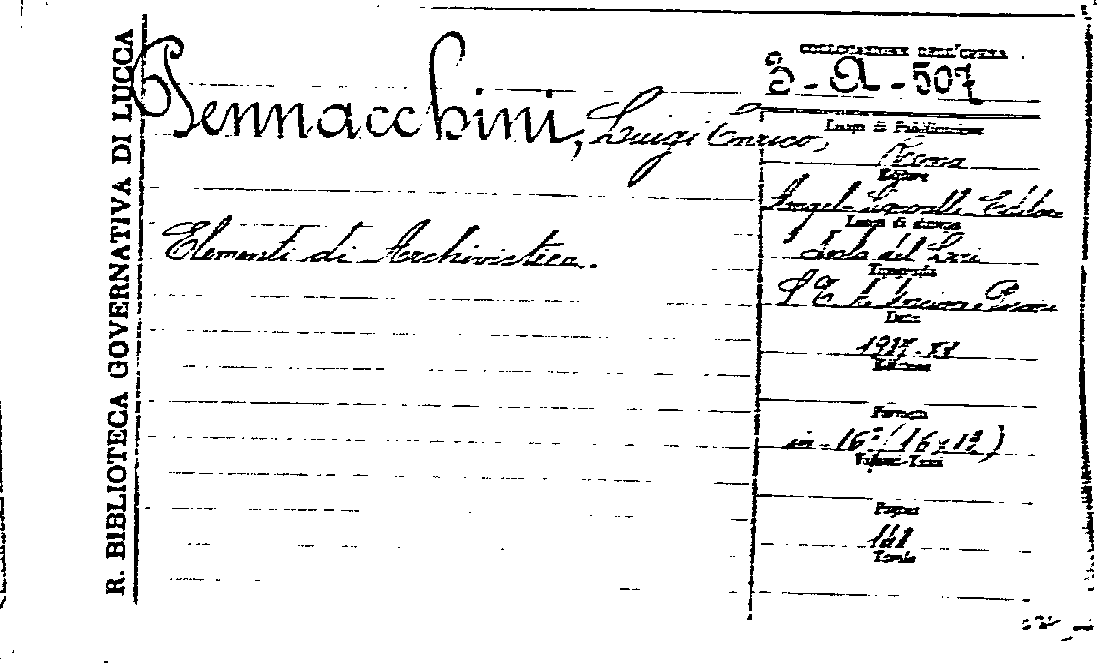 R. BIBLIOTECA GOVERNATIVA DI LUCCA
Pennacchini, Luigi Enrico,
Elementi di Archivistica.
COLLOCAZIONE DELL'OPERA
3-A-507
Luogo di Pubblicazione
Roma
Editore
Angelo Editore
Luogo di stampa
Isola del Liri
Tipografia
Data
1937-XV
Edizione
Formato
in-16°(16x12)
Volumi-Tomi
Pagine
Tavole